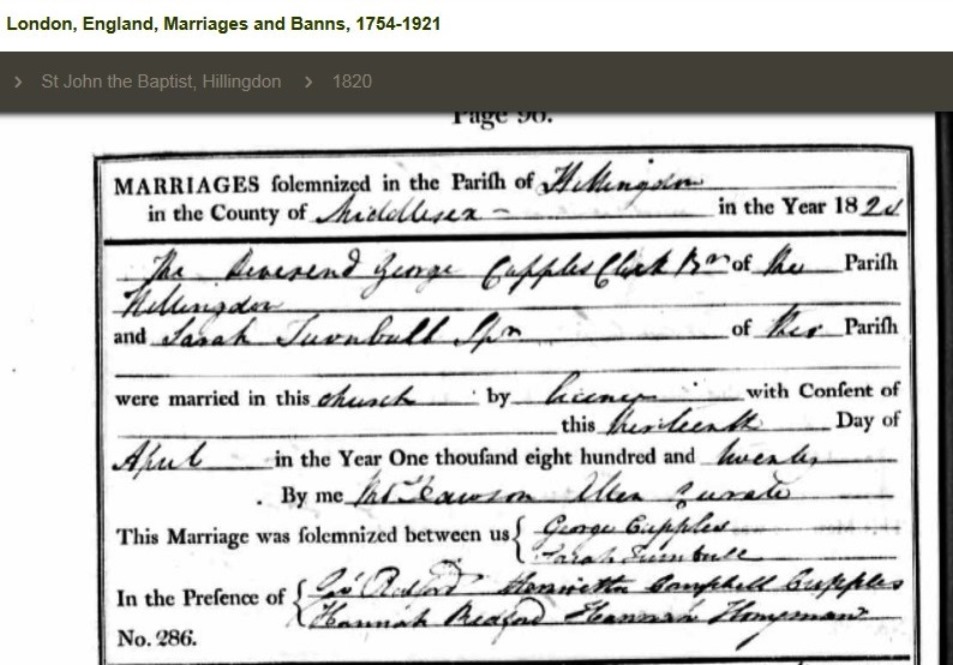 London, England, Marriages and Banns, 1754-1921
› St John the Baptist, Hillingdon › 1820
Page 96.
MARRIAGES ſolemnized in the Pariſh of Hillingdon
in the County of Middlesex - in the Year 1820
The Reverend George Cupples Clerk Br of the Pariſh
Hillingdon
and Sarah Turnbull Spn of this Pariſh
were married in this church by licence with Conſent of
this thirteenth Day of
April in the Year One thouſand eight hundred and twenty
By me Dawson Allen Curate
This Marriage was ſolemnized between us { George Cupples
Sarah Turnbull
In the Preſence of { Redford Henrietta Campbell Cupples
Hannah Redford Hannah
No. 286.